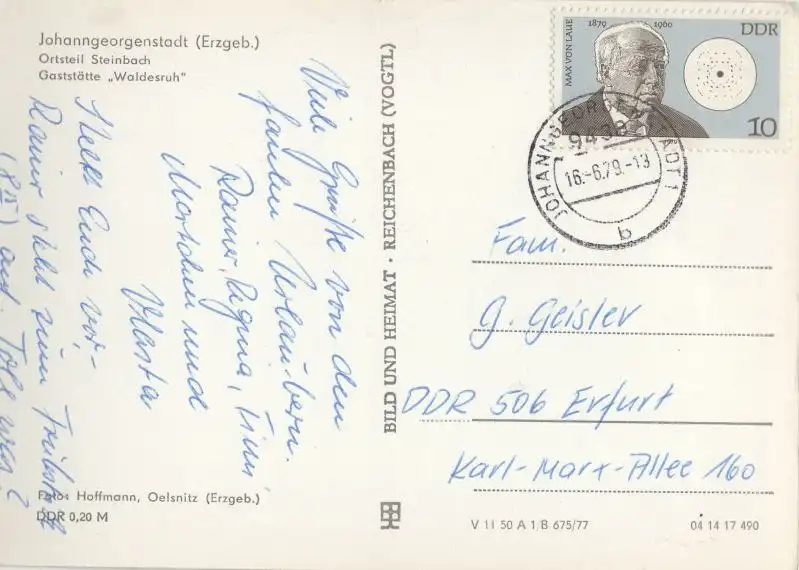 Johanngeorgenstadt (Erzgeb.)
Ortsteil Steinbach
Gaststätte „Waldesruh"
Viele Grüße von den
faulen Urlaubern.
Rainer, Regina, Timi
und
Vlasta
Stellt Euch vor,-
Rainer steht zum Frühstück
(8⁰⁰) auf. Toll was?
Foto: Hoffmann, Oelsnitz (Erzgeb.)
DDR 0,20 M
BILD UND HEIMAT · REICHENBACH (VOGTL)
MAX VON LAUE 1879 1960
DDR
10
JOHANNGEORGENSTADT 1
9438
16.-6.79.-13
b
Fam.
G. Geisler
DDR 506 Erfurt
Karl-Marx-Allee 160
V 11 50 A 1 B 675/77
04 14 17 490